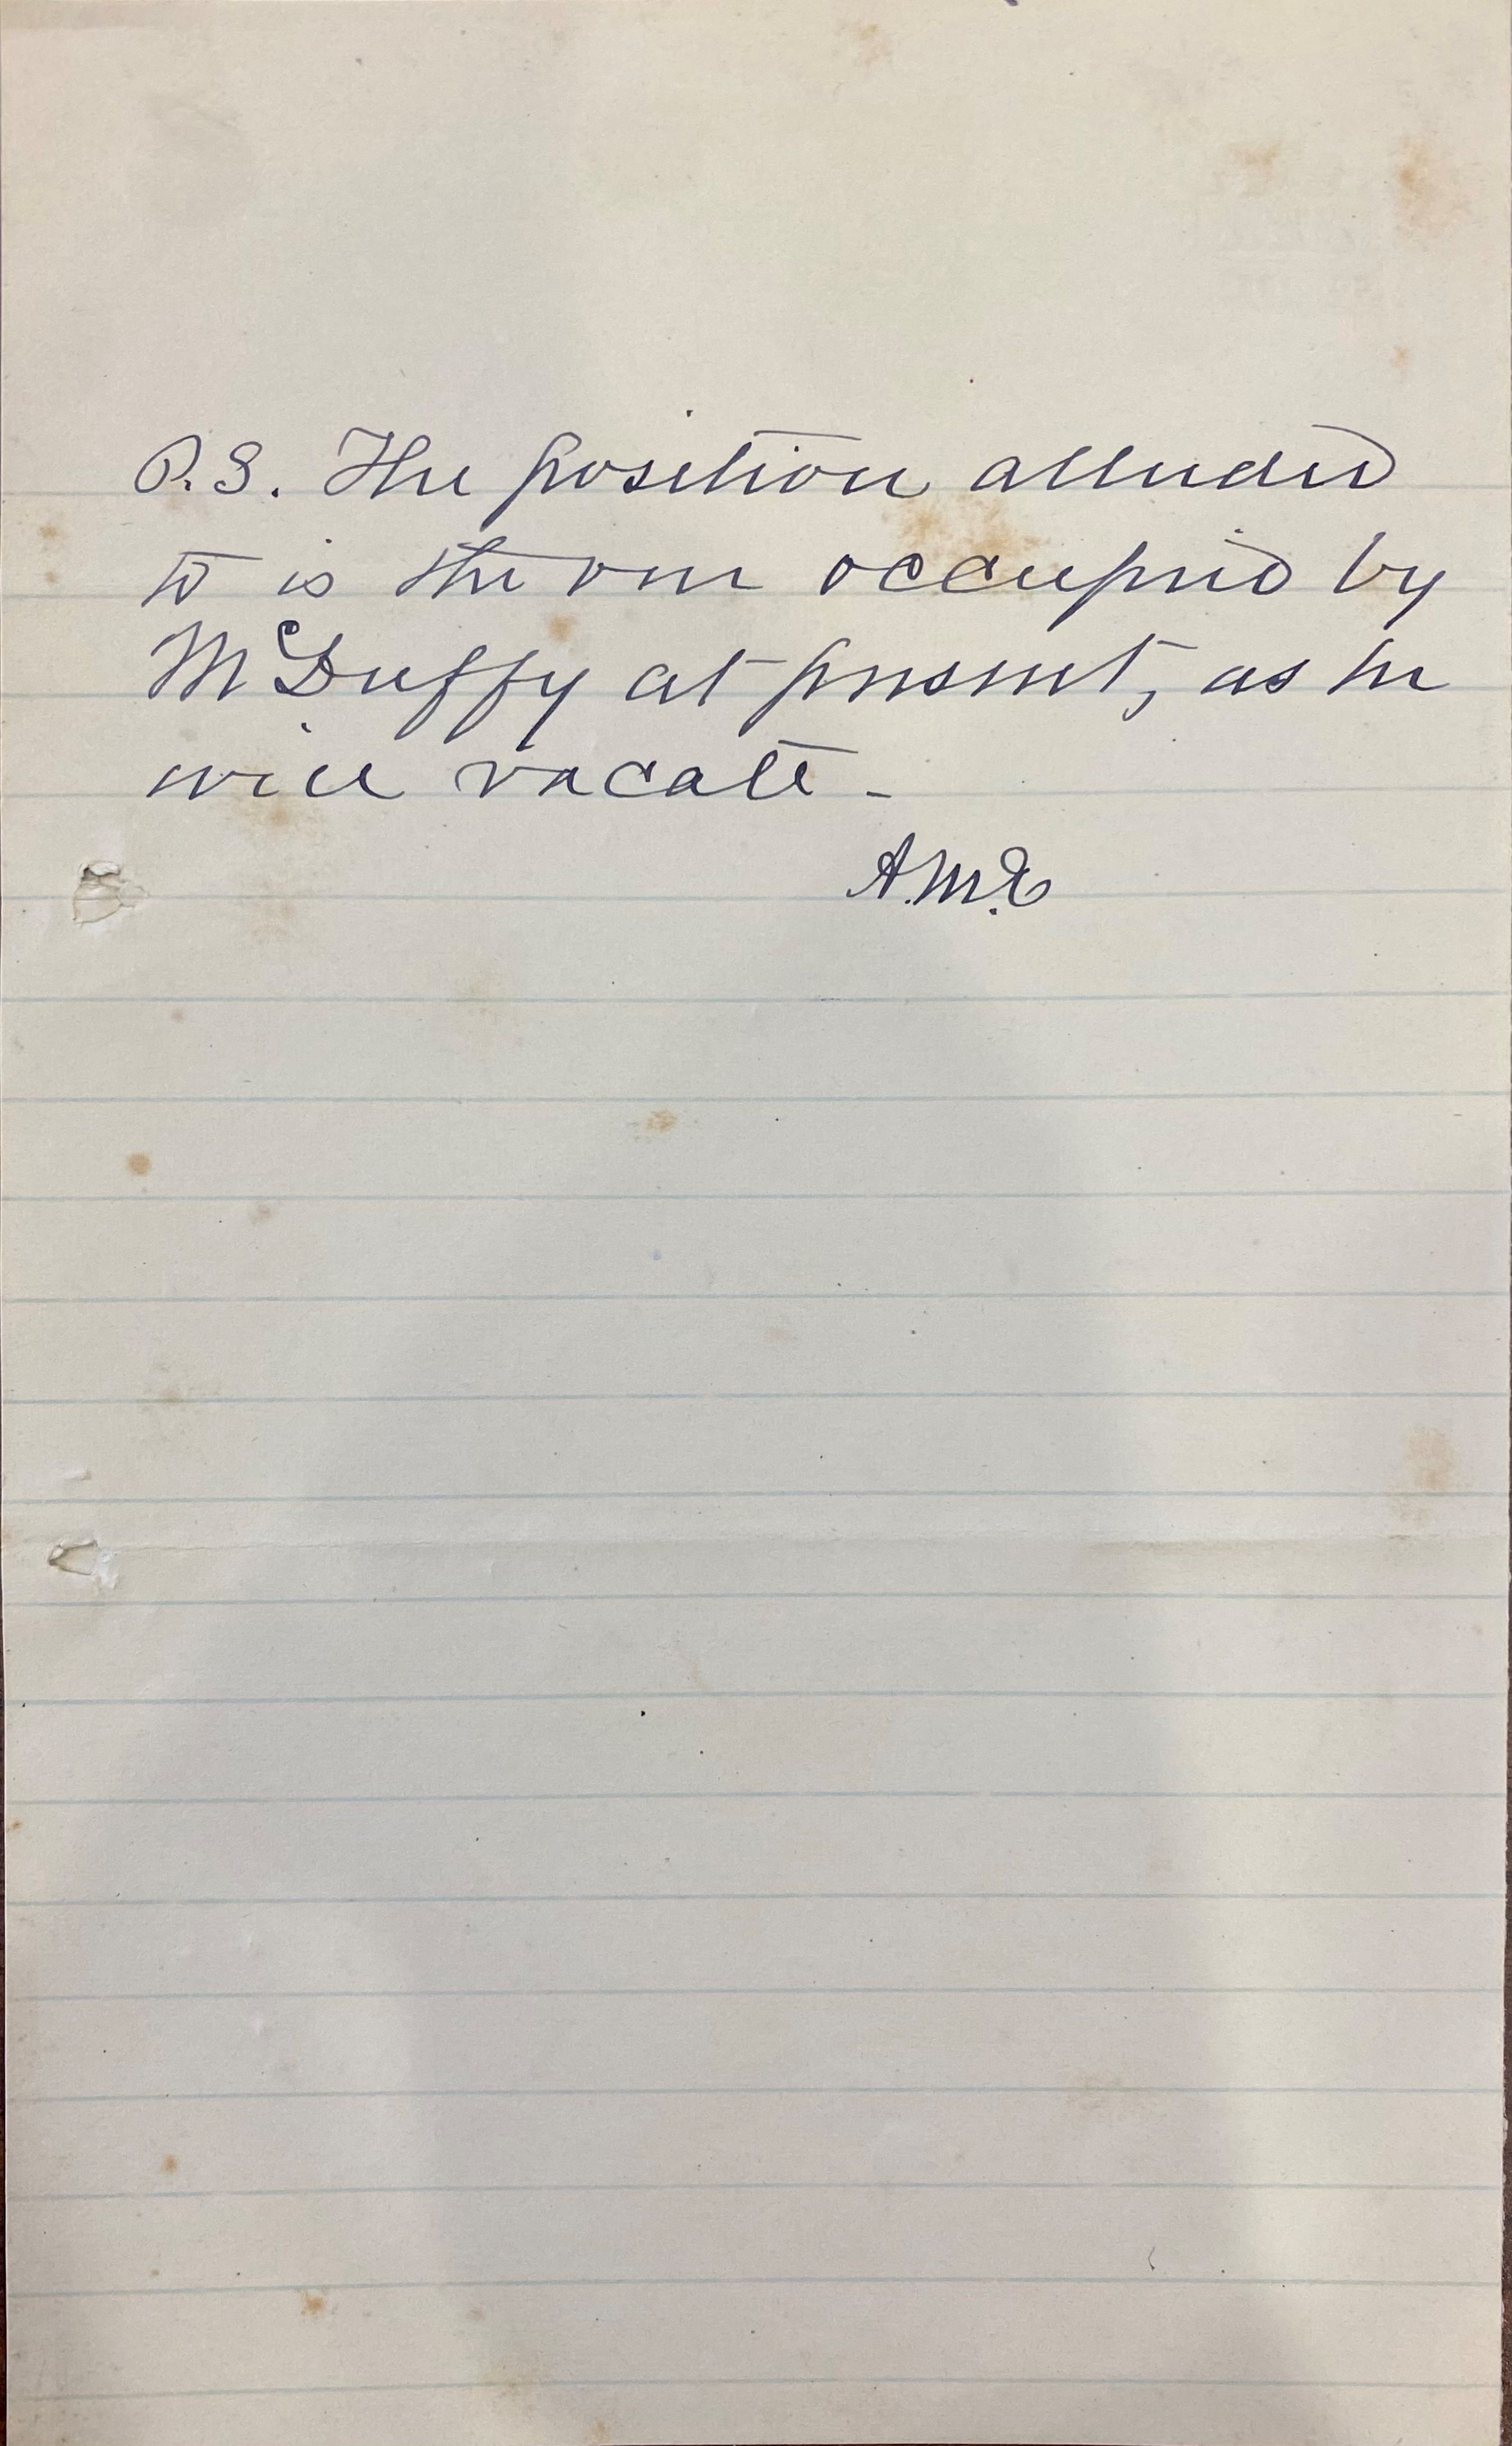 P.S. The position alluded
to is the one occupied by
McDuffy at present, as he
will vacate -
A.M.E